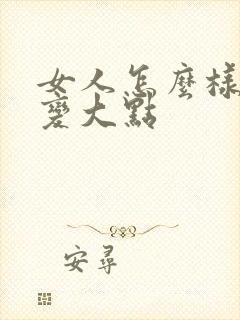 女人怎麼樣
變大點
安尋